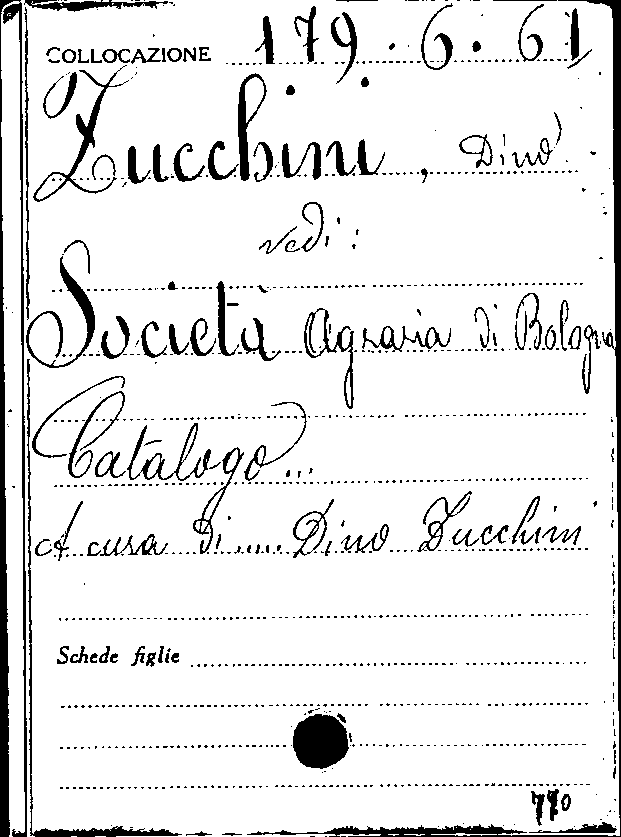 COLLOCAZIONE 179.6.61
Zucchini, Dino
vedi:
Società Agraria di Bologna
Catalogo...
A cura di..... Dino Zucchini
Schede figlie
770